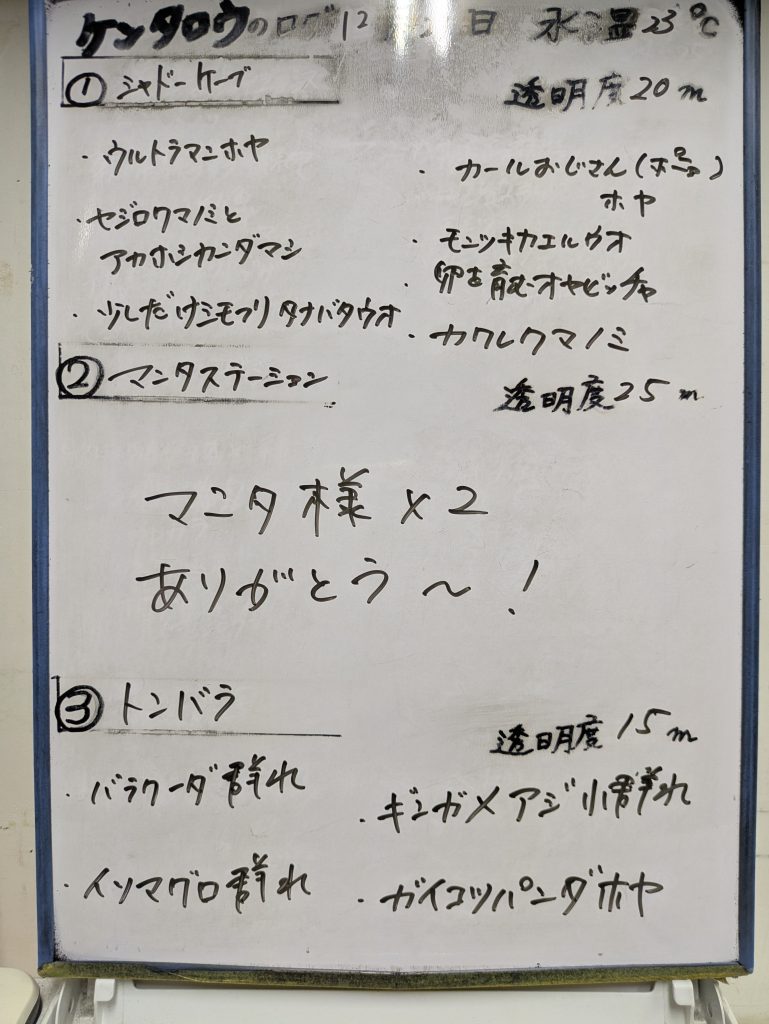 ケンタロウのログ 12 日 水温23℃
① シャドーケーブ
透明度20m
・ウルトラマンホヤ
・カールおじさん(号)
ホヤ
・セジロクマノミと
アカホシカンダマシ
・モンツキカエルウオ
・卵を育むオヤビッチャ
・少しだけシモフリタナバタウオ
・カクレクマノミ
② マンタステーション
透明度25m
マンタ様×2
ありがとう〜!
③ トンバラ
透明度15m
・バラクーダ群れ
・ギンガメアジ小群れ
・イソマグロ群れ
・ガイコツパンダホヤ